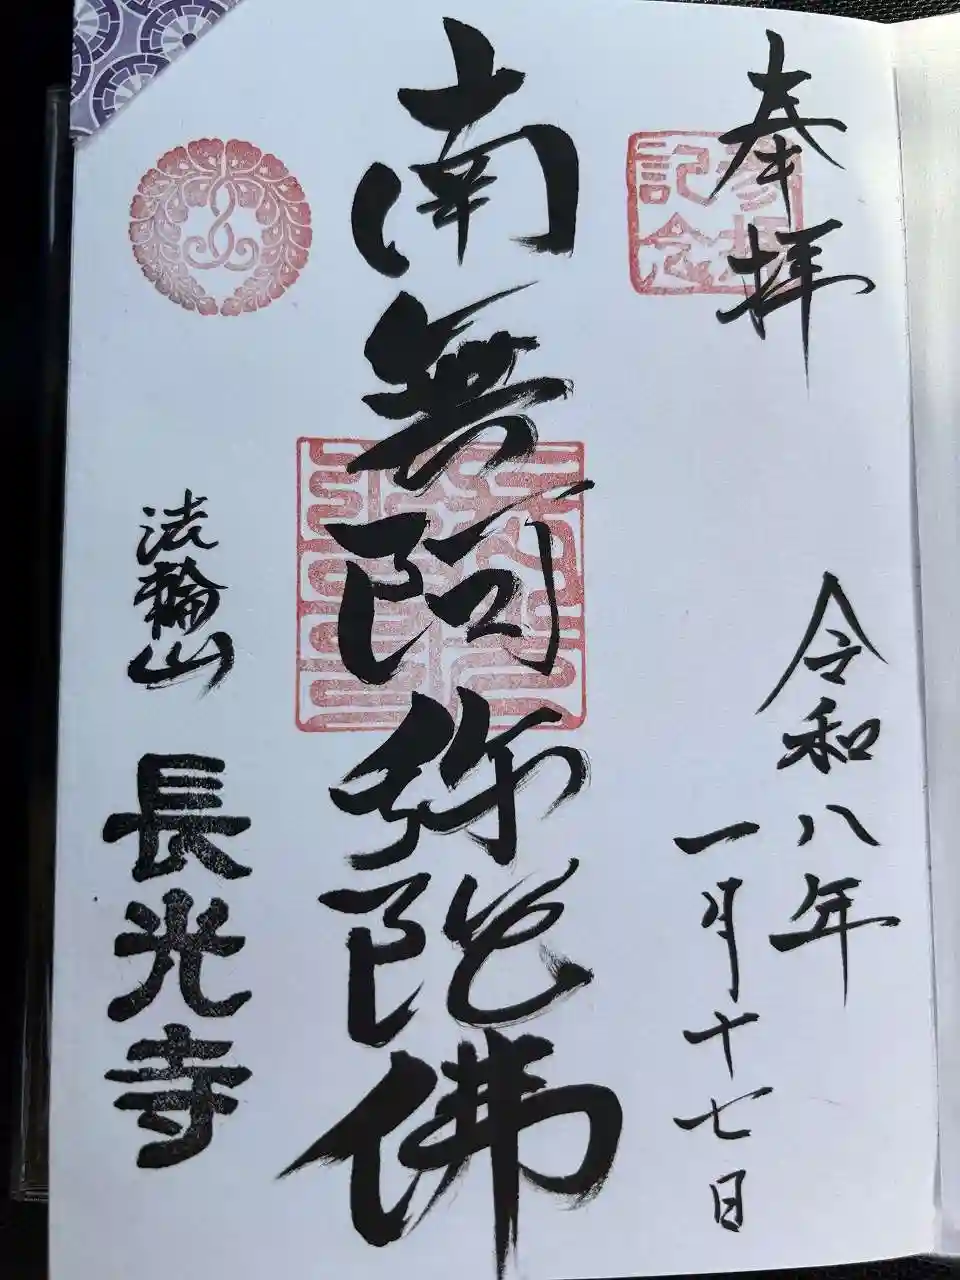 奉拝
参拝
記念
令和八年
一月十七日
南無阿弥陀佛
法輪山
長光寺